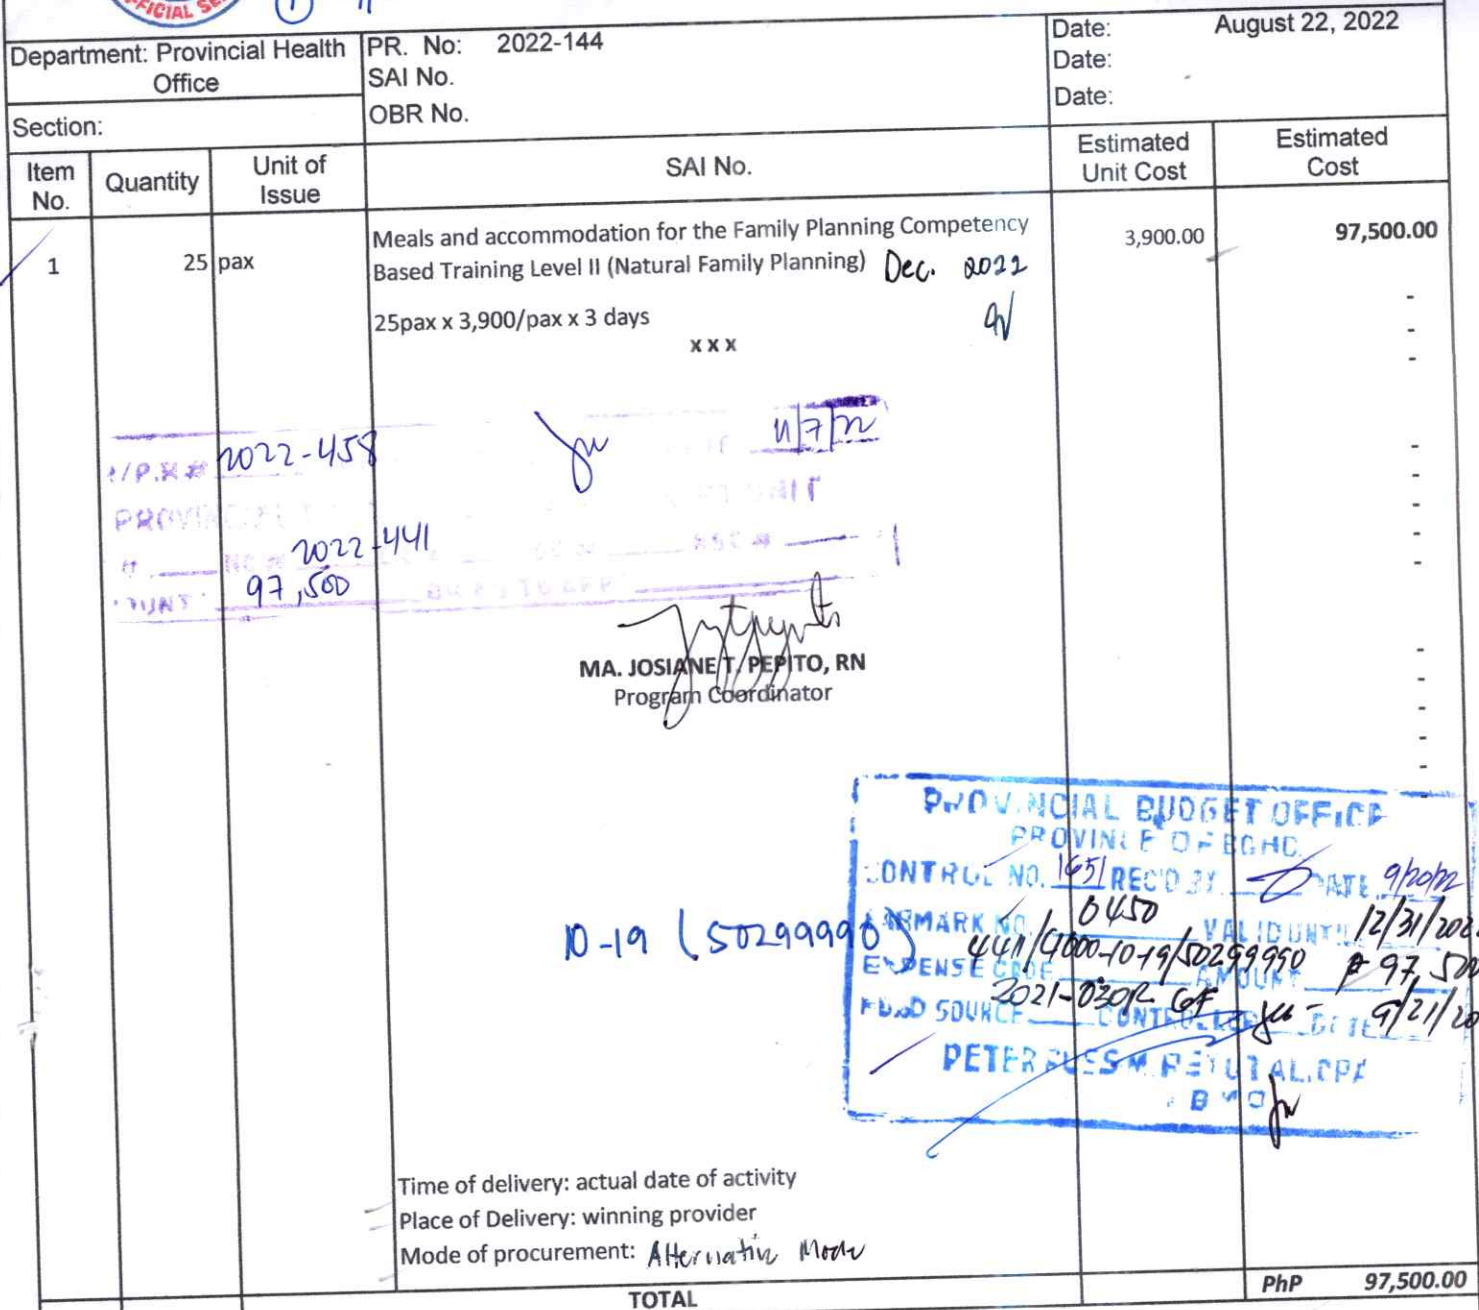 OFFICIAL SE
1
Department: Provincial Health Office
PR. No: 2022-144
SAI No.
OBR No.
Date: August 22, 2022
Date:
Date:
Section:
Item No.
Quantity
Unit of Issue
SAI No.
Estimated Unit Cost
Estimated Cost
1
25
pax
Meals and accommodation for the Family Planning Competency
Based Training Level II (Natural Family Planning) Dec. 2022
3,900.00
97,500.00
25pax x 3,900/pax x 3 days
x x x
-
-
-
-
-
-
-
-
/P.R # 2022-458
11/7/22
2022-441
97,500
MA. JOSIANE T. PEPITO, RN
Program Coordinator
-
-
-
-
-
PROVINCIAL BUDGET OFFICE
PROVINCE OF
CONTROL NO. 1651 REC'D BY DATE 9/20/22
EARMARK NO. 0450 VALID UNTIL 12/31/202
10-19 (50299990)
4411/9000-10-19/50299990 ₱ 97,500
EXPENSE CODE AMOUNT
2021-030R GF
FUND SOURCE CONTROLLER DATE 9/21/20
Time of delivery: actual date of activity
Place of Delivery: winning provider
Mode of procurement: Alternative Mode
TOTAL
PhP 97,500.00